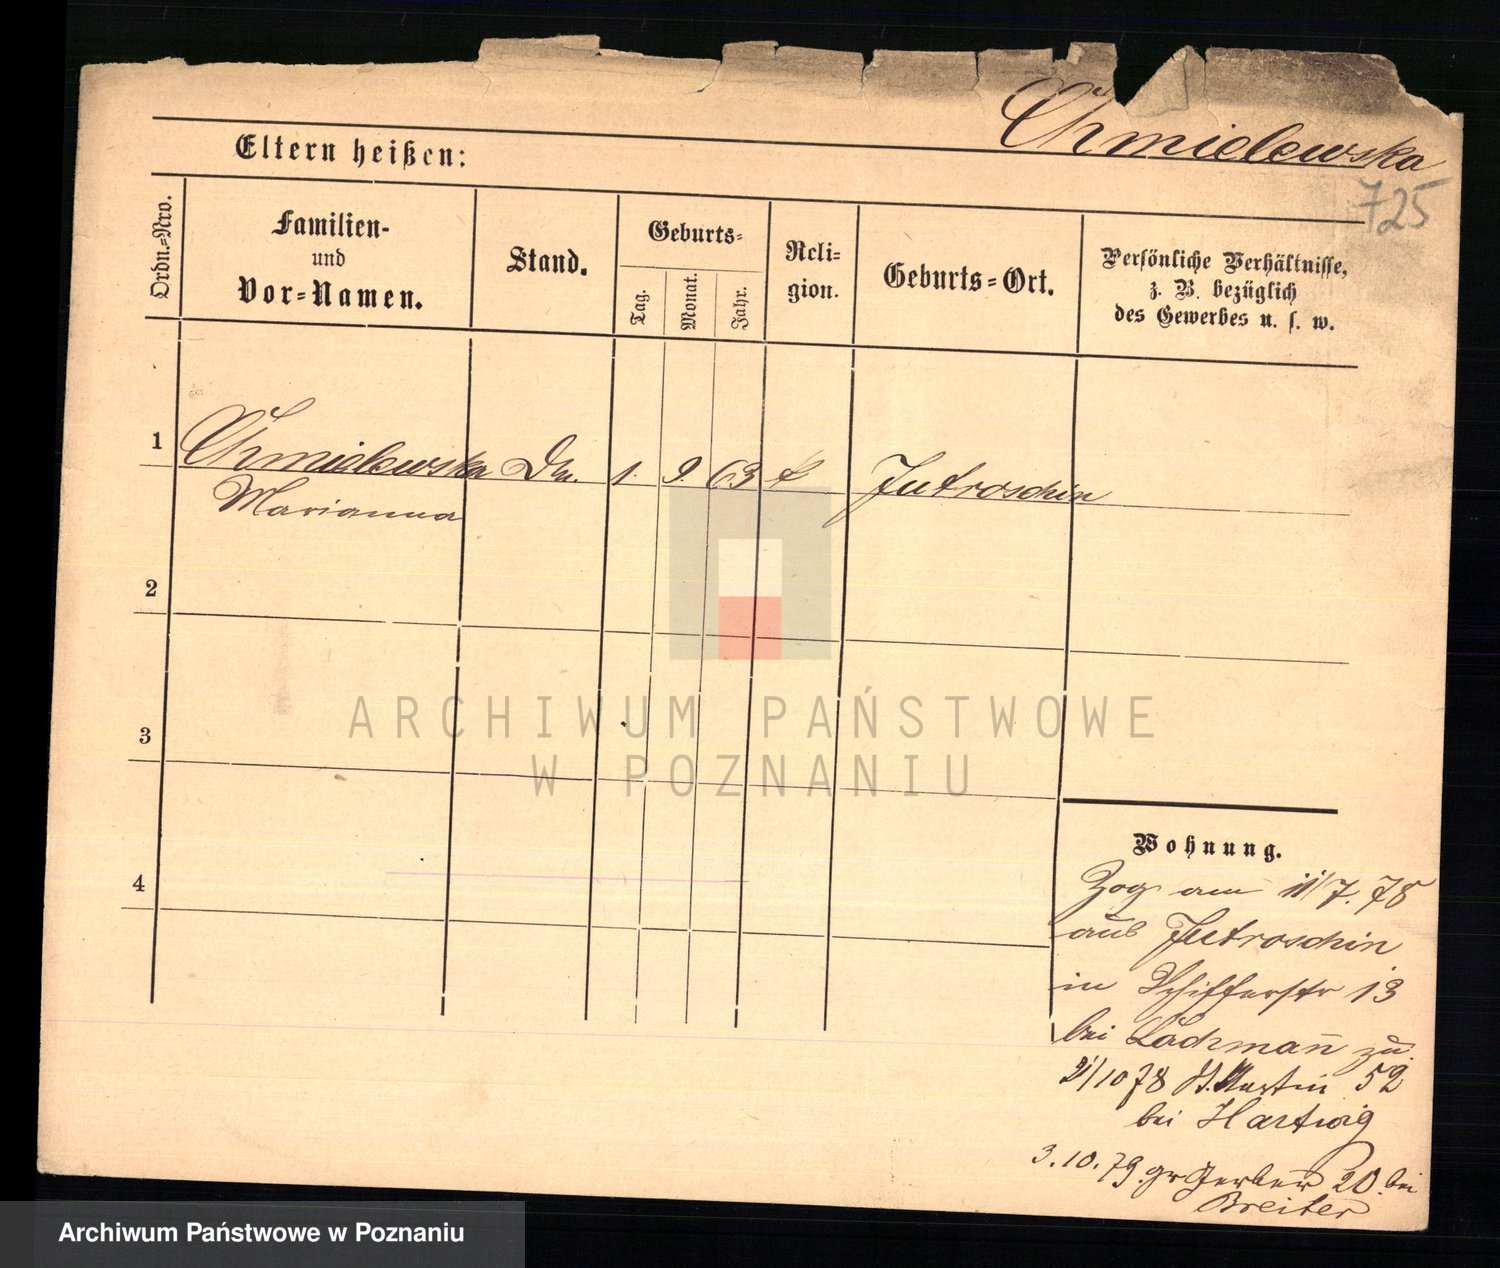 Chmielewska
Eltern heißen:
725
Ordn.=Nro.
Familien-
und
Vor=Namen.
Stand.
Geburts=
Tag.
Monat.
Jahr.
Reli=
gion.
Geburts=Ort.
Persönliche Verhältnisse,
z. B. bezüglich
des Gewerbes u. s. w.
1
Chmielewska 1. 9. 63 Jutroschin
Marianna
2
3
4
ARCHIWUM PAŃSTWOWE
W POZNANIU
Wohnung.
Zog am 11/7. 78
aus Jutroschin
in Schifferstr 13
bei Lachman̅ zu.
2/10 78 St. Martin 52
bei Hartwig
3.10.79. gr Gerber 20. bei
Breiter
Archiwum Państwowe w Poznaniu